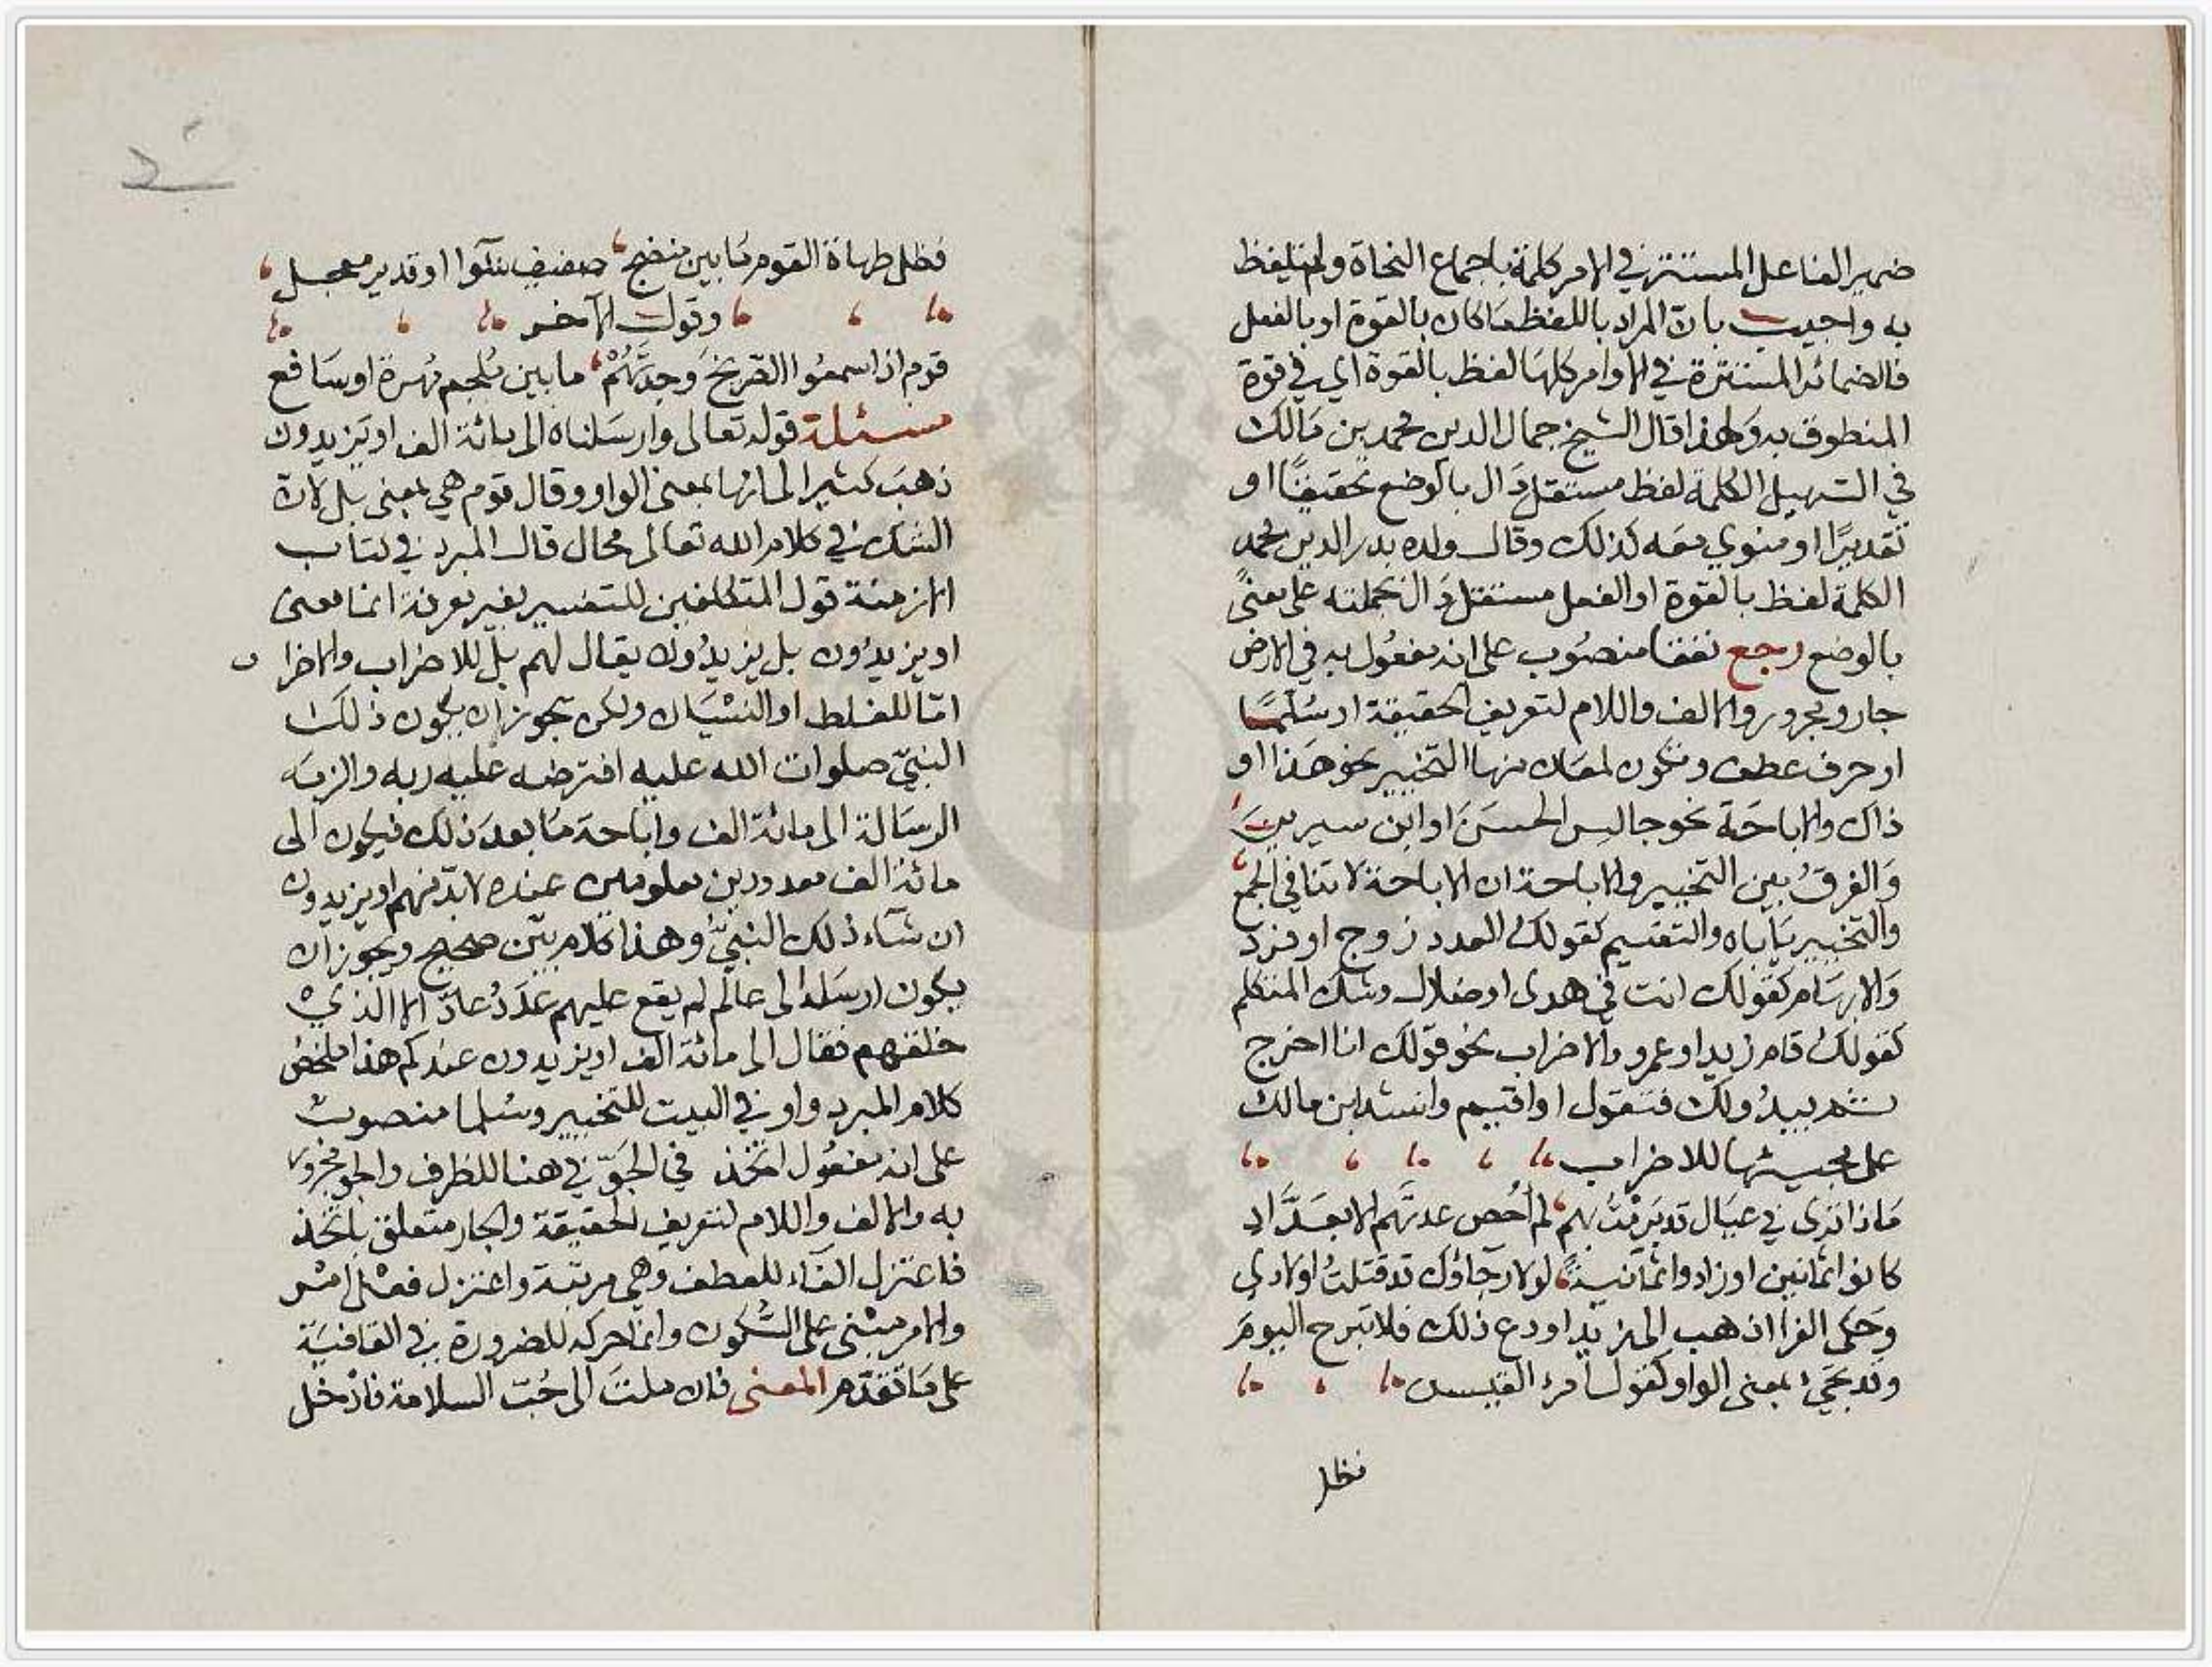 ضمير الفاعل المستتر في الامر كلمة باجماع النحاة ولم يلفظ
به واجيب بان المراد باللفظ ما كان بالقوة او بالفعل
فالضمائر المستترة في الاوامر كلها لفظ بالقوة اي في قوة
المنطوق به ولهذا قال الشيخ جمال الدين محمد بن مالك
في التسهيل الكلمة لفظ مستقل دال بالوضع تحقيقًا او
تقديرًا او منوي معه كذلك وقال ولده بدر الدين محمد
الكلمة لفظ بالقوة او الفعل مستقل دال بجملته على معنًى
بالوضع رجع نفقا منصُوب على انه مفعُول به في الارض
جار ومجرور والالف واللام لتعريف الحقيقة او سُلَّمًا
او حرف عطف وتكون لمعان منها التخيير نحو هَذا او
ذاك والاباحَة نحو جالِس الحسَنَ او ابن سيرين
وَالفرقُ بين التخيير والاباحة ان الاباحة لا تنافي الجمع
والتخيير يَاباه والتقسيم كقولك العدد زوج او فرد
وَالابهَام كقولك انت في هدى او ضلال وشك المتكلم
كقولك قام زيد او عمرو والاضراب نحو قولك انا اخرج
ثم يبدُو لك فتقول او اقيم وانشد ابن مالك
على مجيئها للاضراب
مَاذا ترى في عيَال قد بَرِمْتُ بهم لم اُحْصِ عدتَّهم الا بعَدَّادِ
كانوا ثمانين او زادوا ثمانيةً لولا رجآؤك قد قتلتُ اولادي
وَحكى الفرا اذهب الى زيد او دع ذلك فلا تبرح اليومَ
وقد تجيء بمعنى الواو كقول امرء القيس
فظل
فظل طهاة القوم مَا بين منضج صفيف شوآ او قدير معجل
وقول الآخر
قوم اذا سمعُوا الصَّريخَ وَجدتَّهُمْ ما بين مُلجم مُهرة او سَافع
مسئلة قوله تعالى وارسَلناه الى مائة الف او يَزيدون
ذهبَ كثير الى انها بمعنى الواو وقال قوم هي بمعنى بل لانَّ
الشك في كلام الله تعالى محال قال المبرد في كتاب
الازمنة قول المتكلفين للتفسير بغير معرفة انما معنى
او يزيدُون بل يزيدُون يقال لهم بل للاضراب والاضرا ب
امّا للغلط او النسْيَان ولكن يجوز ان يكون ذلك
النبيّ صلوات الله عليه افترضه عليه ربه والزمَه
الرسَالة الى مائة الف واباحة مَا بعدَ ذلك فيكون الى
مائة الف معدودين معلومين عنده لابدّ منهم او يزيدون
ان شآء ذلك النبيُّ وهذا كلام بيّن صحيح ويجوز ان
يكون ارسَله الى عالَم لم يقع عليهم عَدَدُ عادّ الا الذي
خلقهم فقال الى مائة الف او يزيدون عندكم هذا ملخصُ
كلام المبرد واو في البيت للتخيير وسُلما منصوبٌ
على انه مفعُول اتخذ في الجَوّ في هنا للظرف والجو مجرور
به والالف واللام لتعريف الحقيقة والجار متعلق باتخذ
فاعتزل الفآء للعطف وهي مرتبة واعتزل فعْل امْر
والامر مبْني على السُّكون وانما حركه للضرورة في القافيَة
على مَا تقدّم المعنى فان ملتَ الى حُبّ السلامة فادْخل